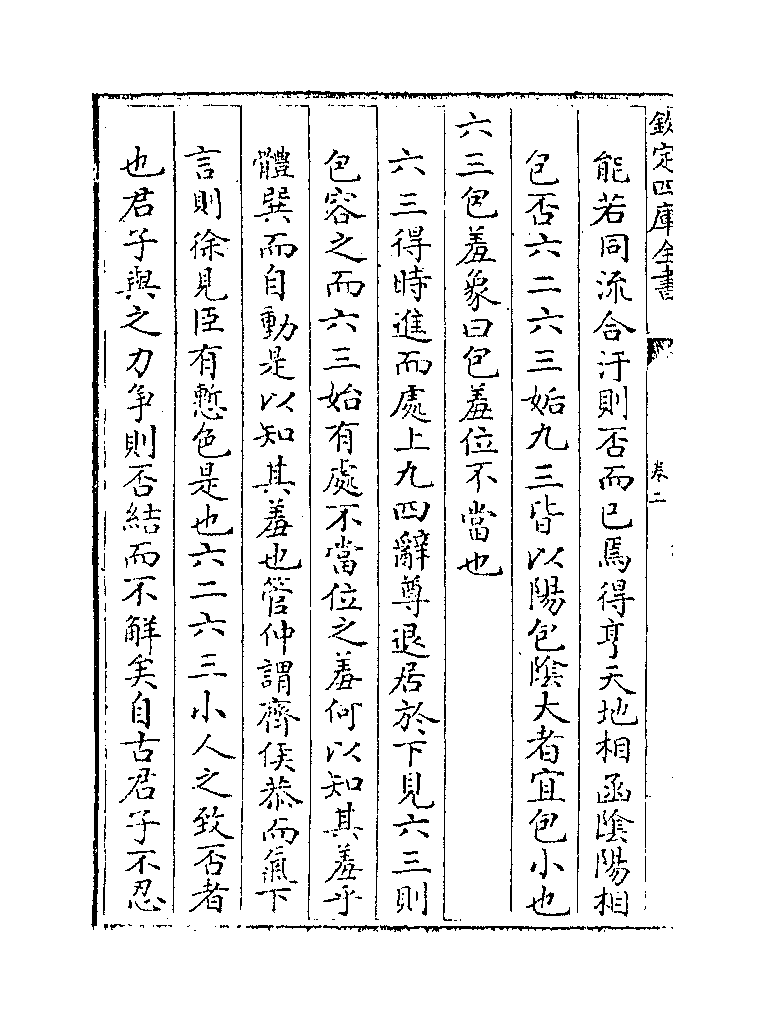 欽定四庫全書
卷二
能若同流合汙則否而已焉得亨天地相函陰陽相
包否六二六三姤九三皆以陽包陰大者宜包小也
六三包羞象曰包羞位不當也
六三得時進而處上九四辭尊退居於下見六三則
包容之而六三始有處不當位之羞何以知其羞乎
體巽而自動是以知其羞也管仲謂齊侯恭而氣下
言則徐見臣有慙色是也六二六三小人之致否者
也君子與之力爭則否結而不解矣自古君子不忍